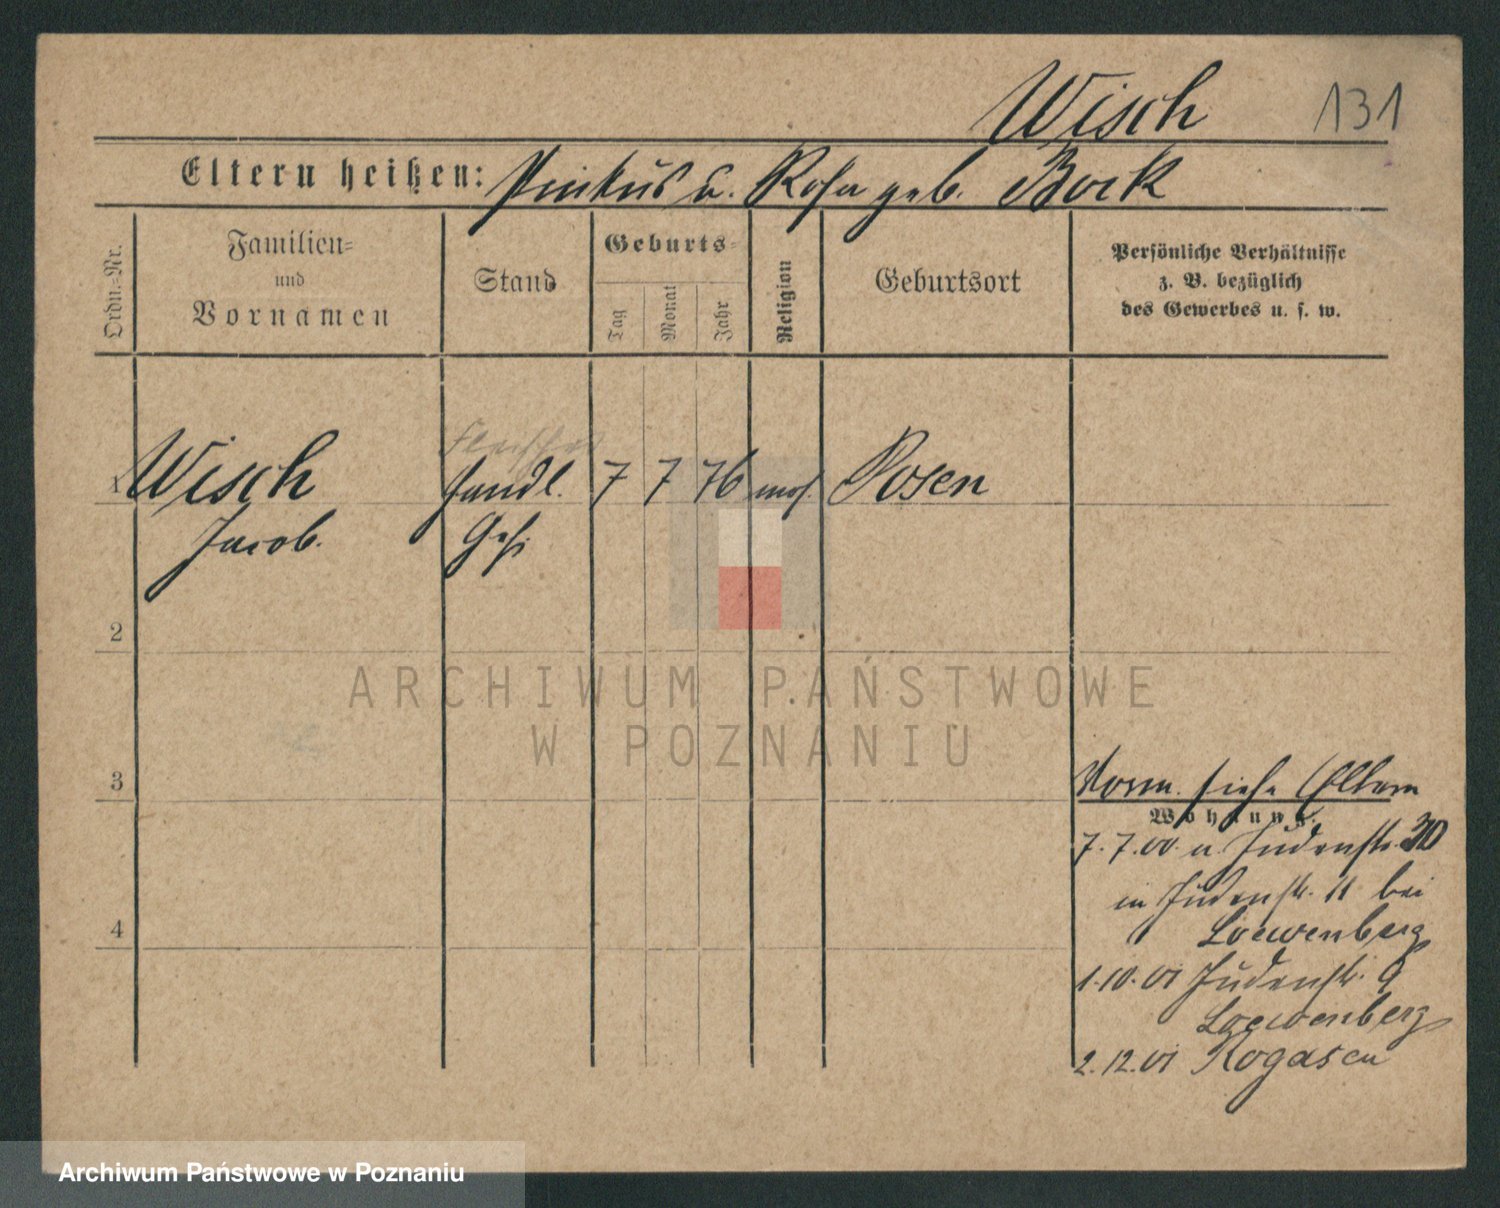 Wisch 131
Eltern heißen: Pinkus u. Rosa geb. Bock
Ordn.-Nr.
Familien-
und
Vornamen
Stand
Geburts-
Tag
Monat
Jahr
Religion
Geburtsort
Persönliche Verhältnisse
z. B. bezüglich
des Gewerbes u. s. w.
Fleischer
1 Wisch Handl. 7 7 76 mos. Posen
Jacob. Geh.
2
ARCHIWUM PAŃSTWOWE
W POZNANIU
3
Vorm. siehe Eltern
Wohnung.
7.7.00 v. Judenstr. 30
in Judenstr. 11 bei
4
Loewenberg
1.10.01 Judenstr. 9
Loewenberg
2.12.01 Rogasen
Archiwum Państwowe w Poznaniu